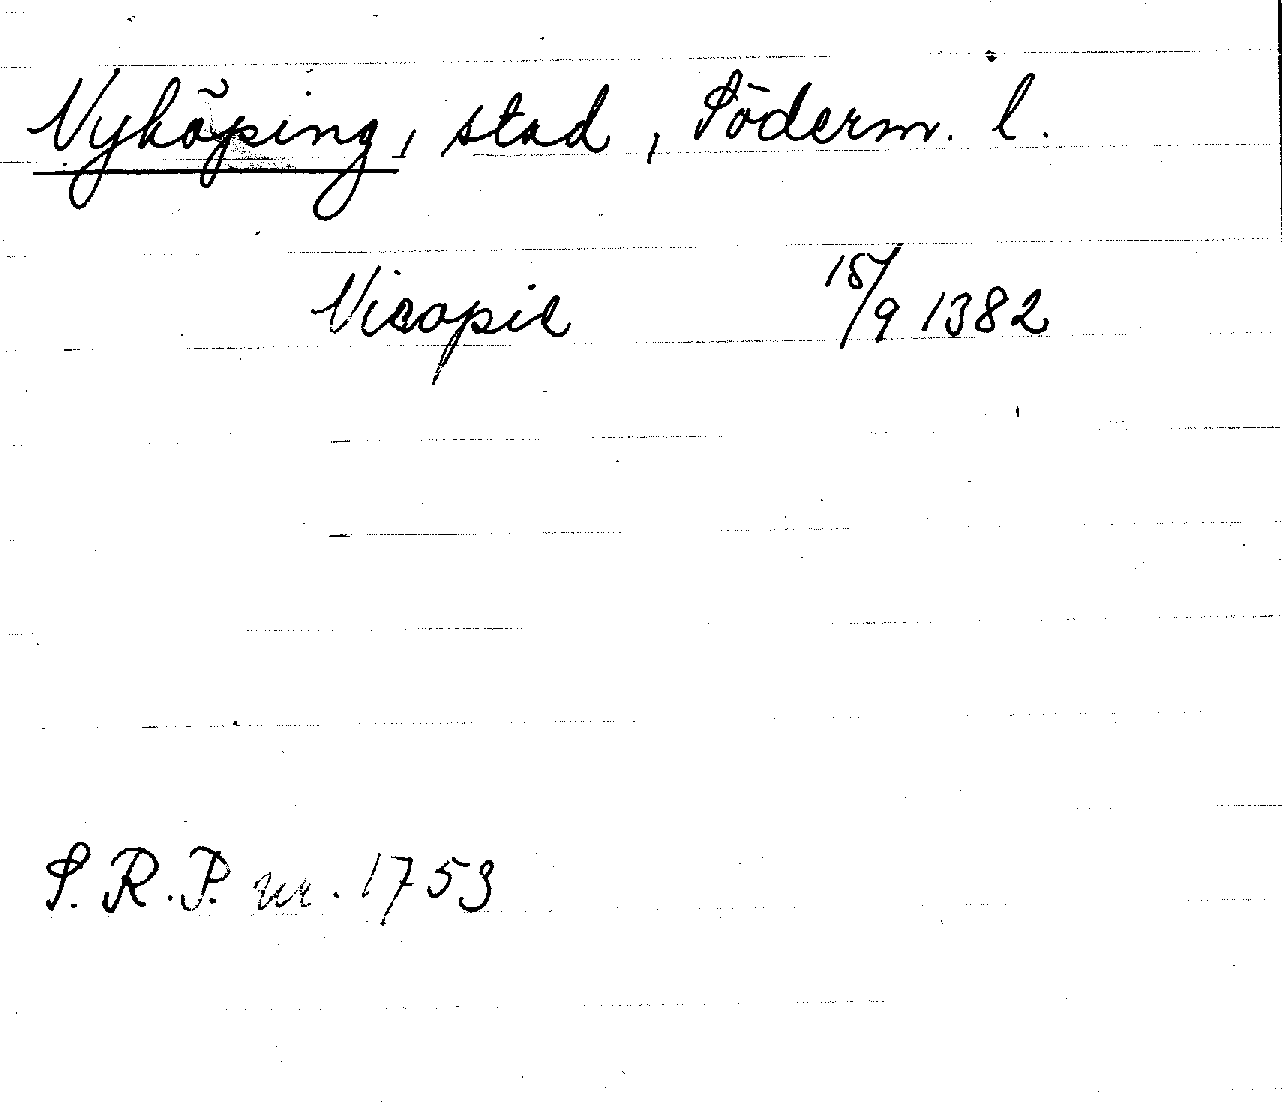 Nyköping, stad, Söderm. l.
Nicopie 15/9 1382
S.R.P. nr. 1753